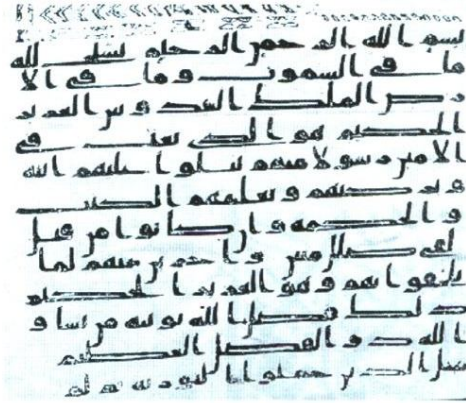 بسم الله الرحمن الرحيم يسبح لله
ما في السموت وما في الا
رض الملك القدوس العزيز
الحكيم هو الذي بعث في
الامين رسولا منهم يتلوا عليهم ايته
ويزكيهم ويعلمهم الكتب
والحكمه وان كانوا من قبل
لفي ضلل مبين واخرين منهم لما
يلحقوا بهم وهو العزيز الحكيم
ذلك فضل الله يوتيه من يشا و
الله ذو الفضل العظيم
مثل الذين حملوا التوريه ثم لم